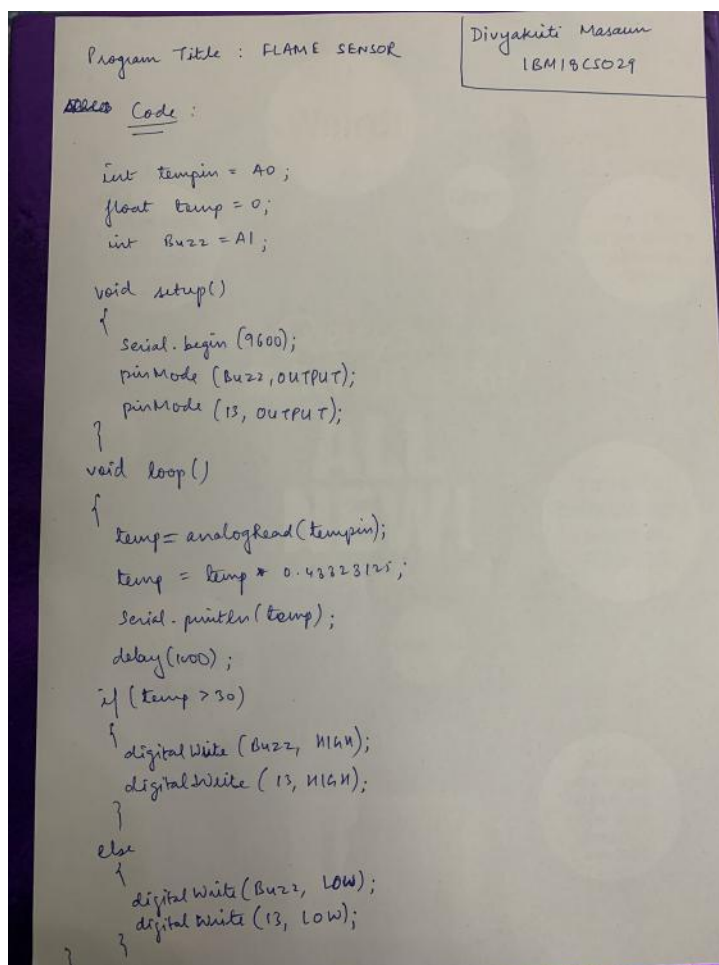 Program Title : FLAME SENSOR
Divyakriti Masaun
1BM18CS029
Code :
int tempin = A0 ;
float temp = 0;
int Buzz = A1 ;
void setup()
{
Serial.begin (9600);
pinMode (Buzz, OUTPUT);
pinMode (13, OUTPUT);
}
void loop()
{
temp = analogRead(tempin);
temp = temp * 0.48828125;
Serial.println(temp);
delay(1000);
if (temp > 30)
{
digitalWrite (Buzz, HIGH);
digitalWrite (13, HIGH);
}
else
{
digitalWrite (Buzz, LOW);
digitalWrite (13, LOW);
}
}